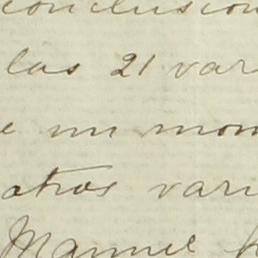 conclusion
las 21 var
e un mom
atras vari
Manuel